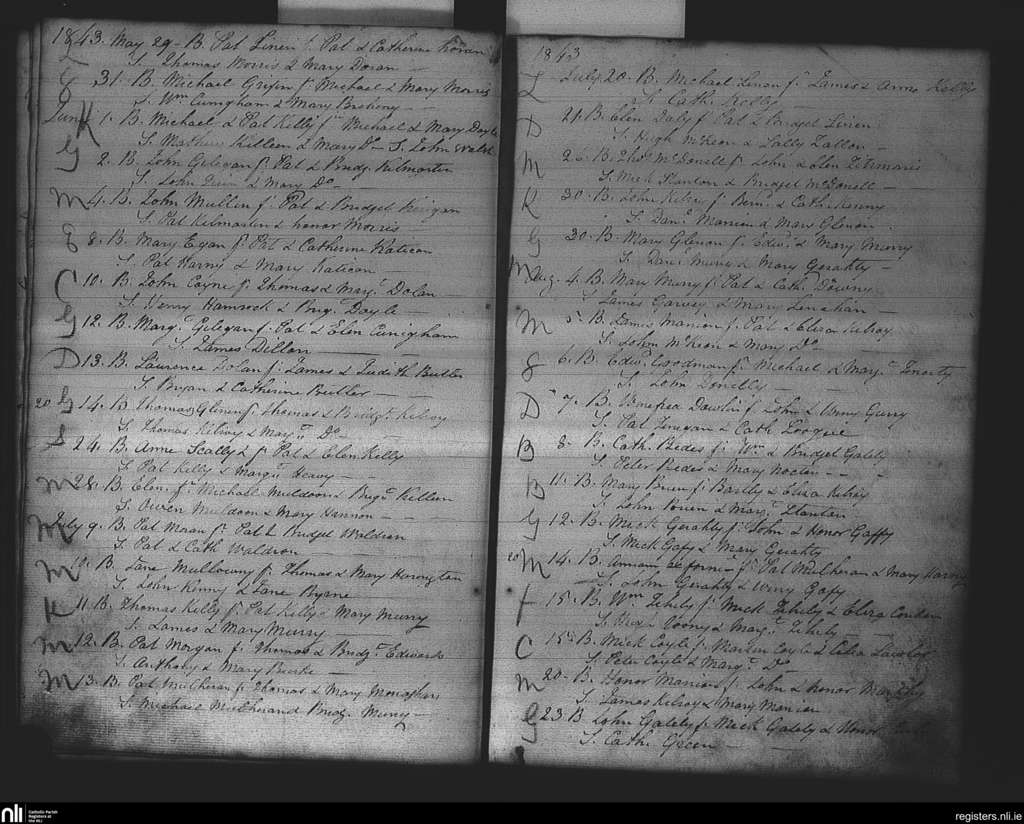 1843. May 29 - B. Pat Linen f. Pat & Catherine Horan
S. Thomas Morris & Mary Doran
31. B. Michael Grifin f. Michael & Mary Morris
S. Wm. Cunigham & Mary
June 1. B. Michael & Pat Kelly f. Michael & Mary Doyle
S. Mathew Killeen & Mary Do - S. John Walsh
2. B. John Gilegan f. Pat & Bridg. Kilmartin
S. John & Mary Do
4. B. John Mullin f. Pat & Bridget Kerigan
S. Pat Kilmartin & honor Morris
8. B. Mary Egan f. Pat & Catherine Katican
S. Pat Harny & Mary Katican
10. B. John Coyne f. Thomas & Marg. Dolan
S. Henry Hamrock & Brig. Doyle
12. B. Marg. Gilegan f. Pat & Elen Cunigham
S. James Dillon
D 13. B. Laurence Dolan f. James & Judith Butler
S. Bryan & Catherine Butler
20 G 14. B. Thomas Glinen f. Thomas & Bridgt. Kilroy
S. Thomas Kilroy & Margt. Do
S 24. B. Anne Scally f. Pat & Elen Kelly
S. Pat Kelly & Margt. Heavy
M 28. B. Elen f. Michael Muldoon & Brigt. Killeen
S. Owen Muldoon & Mary Hannon
July 9. B. Pat Moran f. Pat & Bridget Waldron
S. Pat & Cath Waldron
M B. Jane Mullowny f. Thomas & Mary Harington
S. John Kenny & Jane Byrne
K 11. B. Thomas Kelly f. Pat Kelly & Mary Murry
S. James & Mary Murry
M 12. B. Pat Morgan f. Thomas & Bridgt. Edwards
S. Anthony & Mary Burke
M 13. B. Pat Mulheran f. Thomas & Mary Monaghan
S. Michael Mulheran & Bridg. Murry
1843
L July 20. B. Michael Linon f. James & Anne Kelly
S. Cath. Kelly
D 21. B. Elen Daly f. Pat & Bridget Linen
S. Hugh McKeon & Sally Fallon
M 26. B. Thos. McDonell f. John & Elen Fitzmaris
S. Mick Stanton & Bridget McDonell
K 30. B. John Kilroy f. Bern. & Cath. Kenny
S. Danl. Manion & Mary Glenon
G 30. B. Mary Glenon f. Edwd. & Mary Murry
S. Danl. Murry & Mary Gerahty
M Aug. 4. B. Mary Murry f. Pat & Cath. Downy
S. James Garvey & Mary Linahan
M 5. B. James Manion f. Pat & Eliza Kilroy
S. John McKeon & Mary Do
G 6. B. Edwd. Goodman f. Michael & Margt.
S. John Donelly
D 7. B. Venefrea Dowlin f. John & Anny Curry
S. Pat & Cath
B 8. B. Cath. Beades f. Wm. & Bridget Gately
S. Peter Beades & Mary Nocten
B 11. B. Mary Bruen f. Bartly & Eliza Kilroy
S. John Bruen & Margt. Stanton
G 12. B. Mick Gerahty f. John & Honor Gaffy
S. Mick Gafy & Mary Gerahty
20 M 14. B. f. Pat Mulheran & Mary
S. John Gerahty & Winy Gafy
F 15. B. Wm. Fehely f. Mick Fehely & Eliza
S. & Margt. Fehely
C 15. B. Mick Coyle f. Martin Coyle & Celia
S. Peter Coyle & Margt. Do
M 20. B. Honor Manion f. John & Honor Murphy
S. James Kilroy & Mary Manion
G 23. B. John Gately f. Mick Gately & Honor
S. Cath. Green
nli Catholic Parish Registers at the NLI
registers.nli.ie